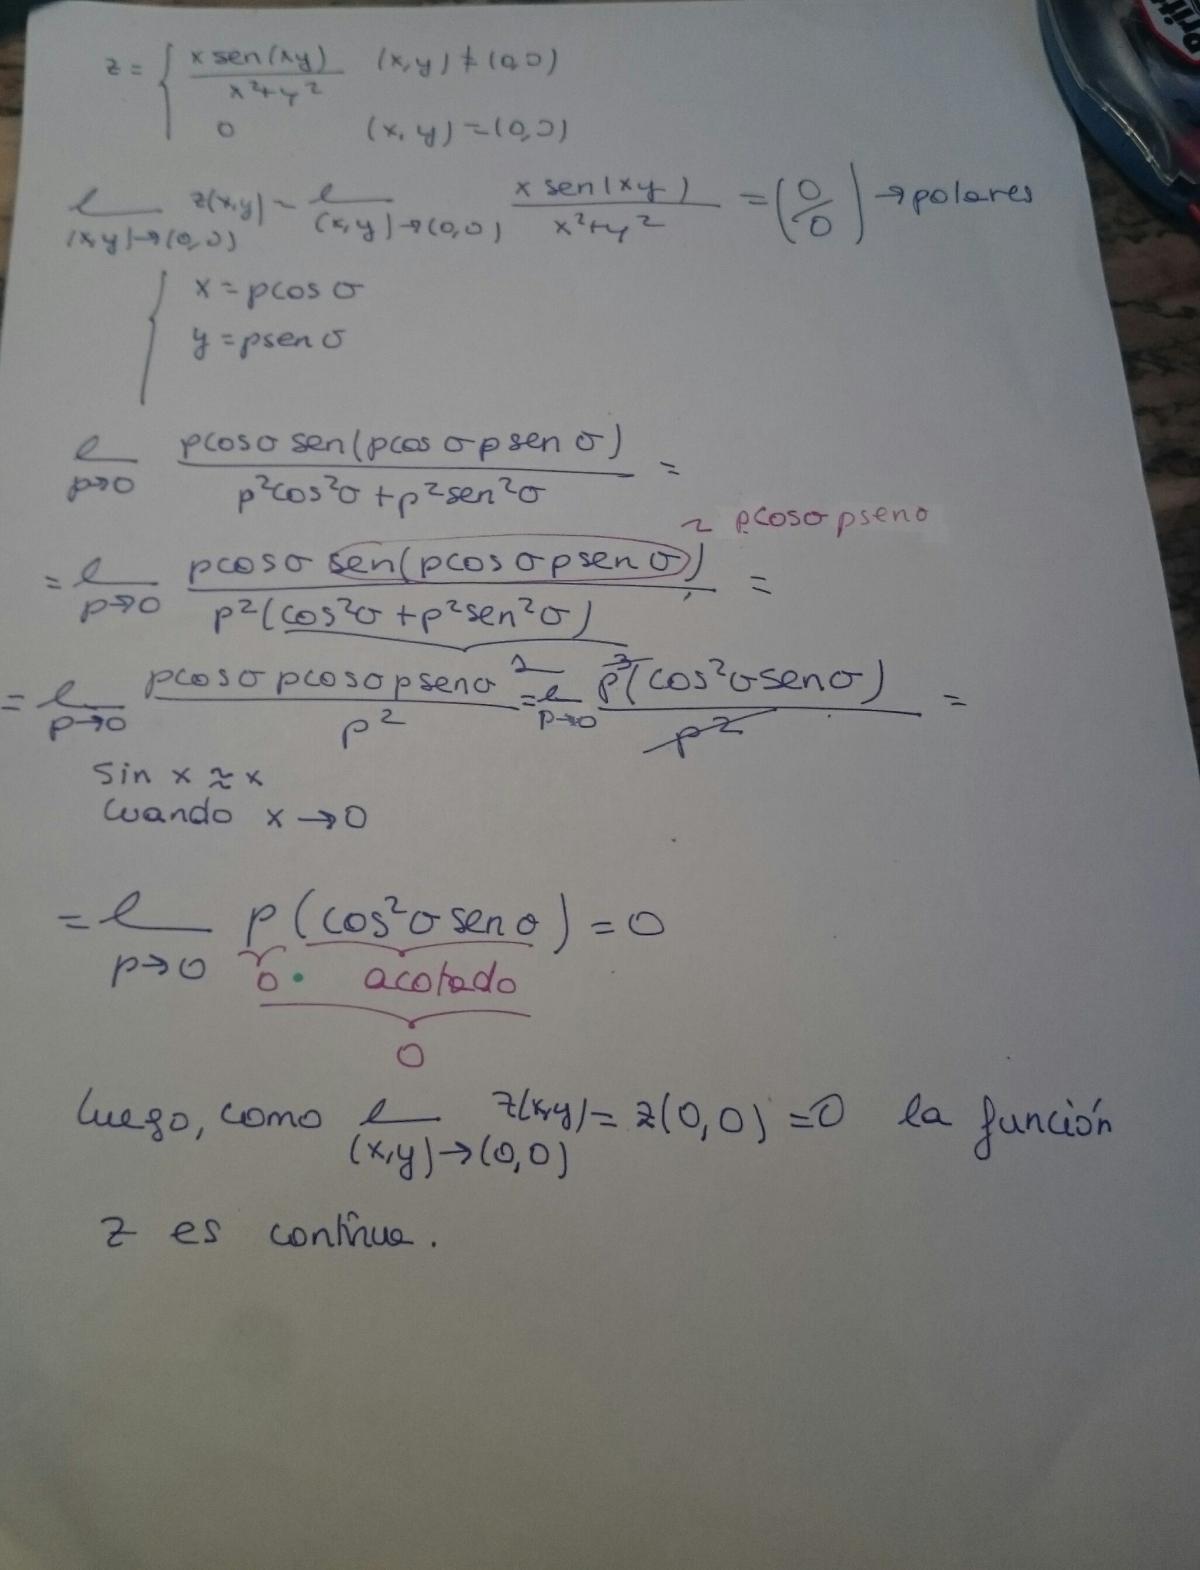 z = { x sen(xy) / x²+y² (x,y) ≠ (0,0)
0 (x,y) = (0,0)
l (x,y)→(0,0) z(x,y) = l (x,y)→(0,0) x sen(xy) / x²+y² = (0/0) → polares
{ x = ρcos σ
y = ρsen σ
l ρ→0 ρcosσ sen(ρcos σ ρ sen σ) / ρ²cos²σ + ρ²sen²σ =
~ ρcosσ ρsenσ
= l ρ→0 ρcosσ sen(ρcos σ ρ sen σ) / ρ²(cos²σ + ρ²sen²σ) =
1
= l ρ→0 ρcosσ ρcosσ ρsenσ / ρ² = l ρ→0 ρ³(cos²σ senσ) / ρ² =
Sin x ≈ x
Cuando x → 0
= l ρ→0 ρ (cos²σ senσ) = 0
0 · acotado
0
luego, como l (x,y)→(0,0) z(x,y) = z(0,0) = 0 la función
z es contínua.